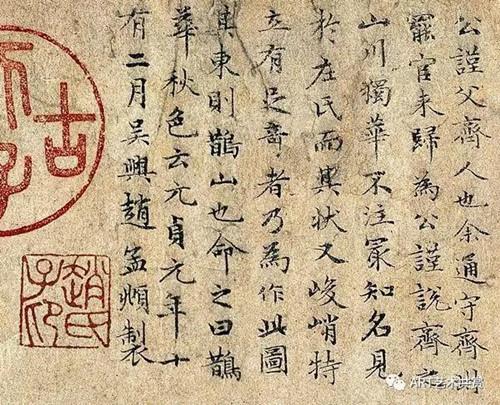 公謹父齊人也余通守齊州
罷官来歸為公謹說齊之
山川獨華不注冣知名見
於左氏而其狀又峻峭特
立有足奇者乃為作此圖
其東則鵲山也命之曰鵲
華秋色云元貞元年十
有二月吳興趙孟頫製
古
子
趙氏子昂
ART艺术共赏